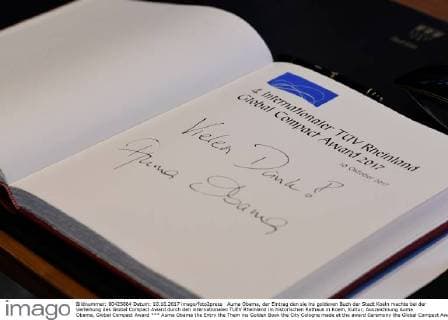 4. Internationaler TÜV Rheinland
Global Compact Award 2017
10. Oktober 2017
Vielen Dank!
Auma Obama
imago
Bildnummer: 80425864 Datum: 10.10.2017 imago/foto2press Auma Obama, der Eintrag den sie ins goldenen Buch der Stadt Koeln machte bei der
Verleihung des Global Compact Award durch den Internationalen TUEV Rheinland im historischen Rathaus in Koeln, Kultur, Auszeichnung Auma
Obama, Global Compact Award *** Auma Obama the Entry the Them ins Golden Book the City Cologne made at the award Ceremony the Global Compact Awa